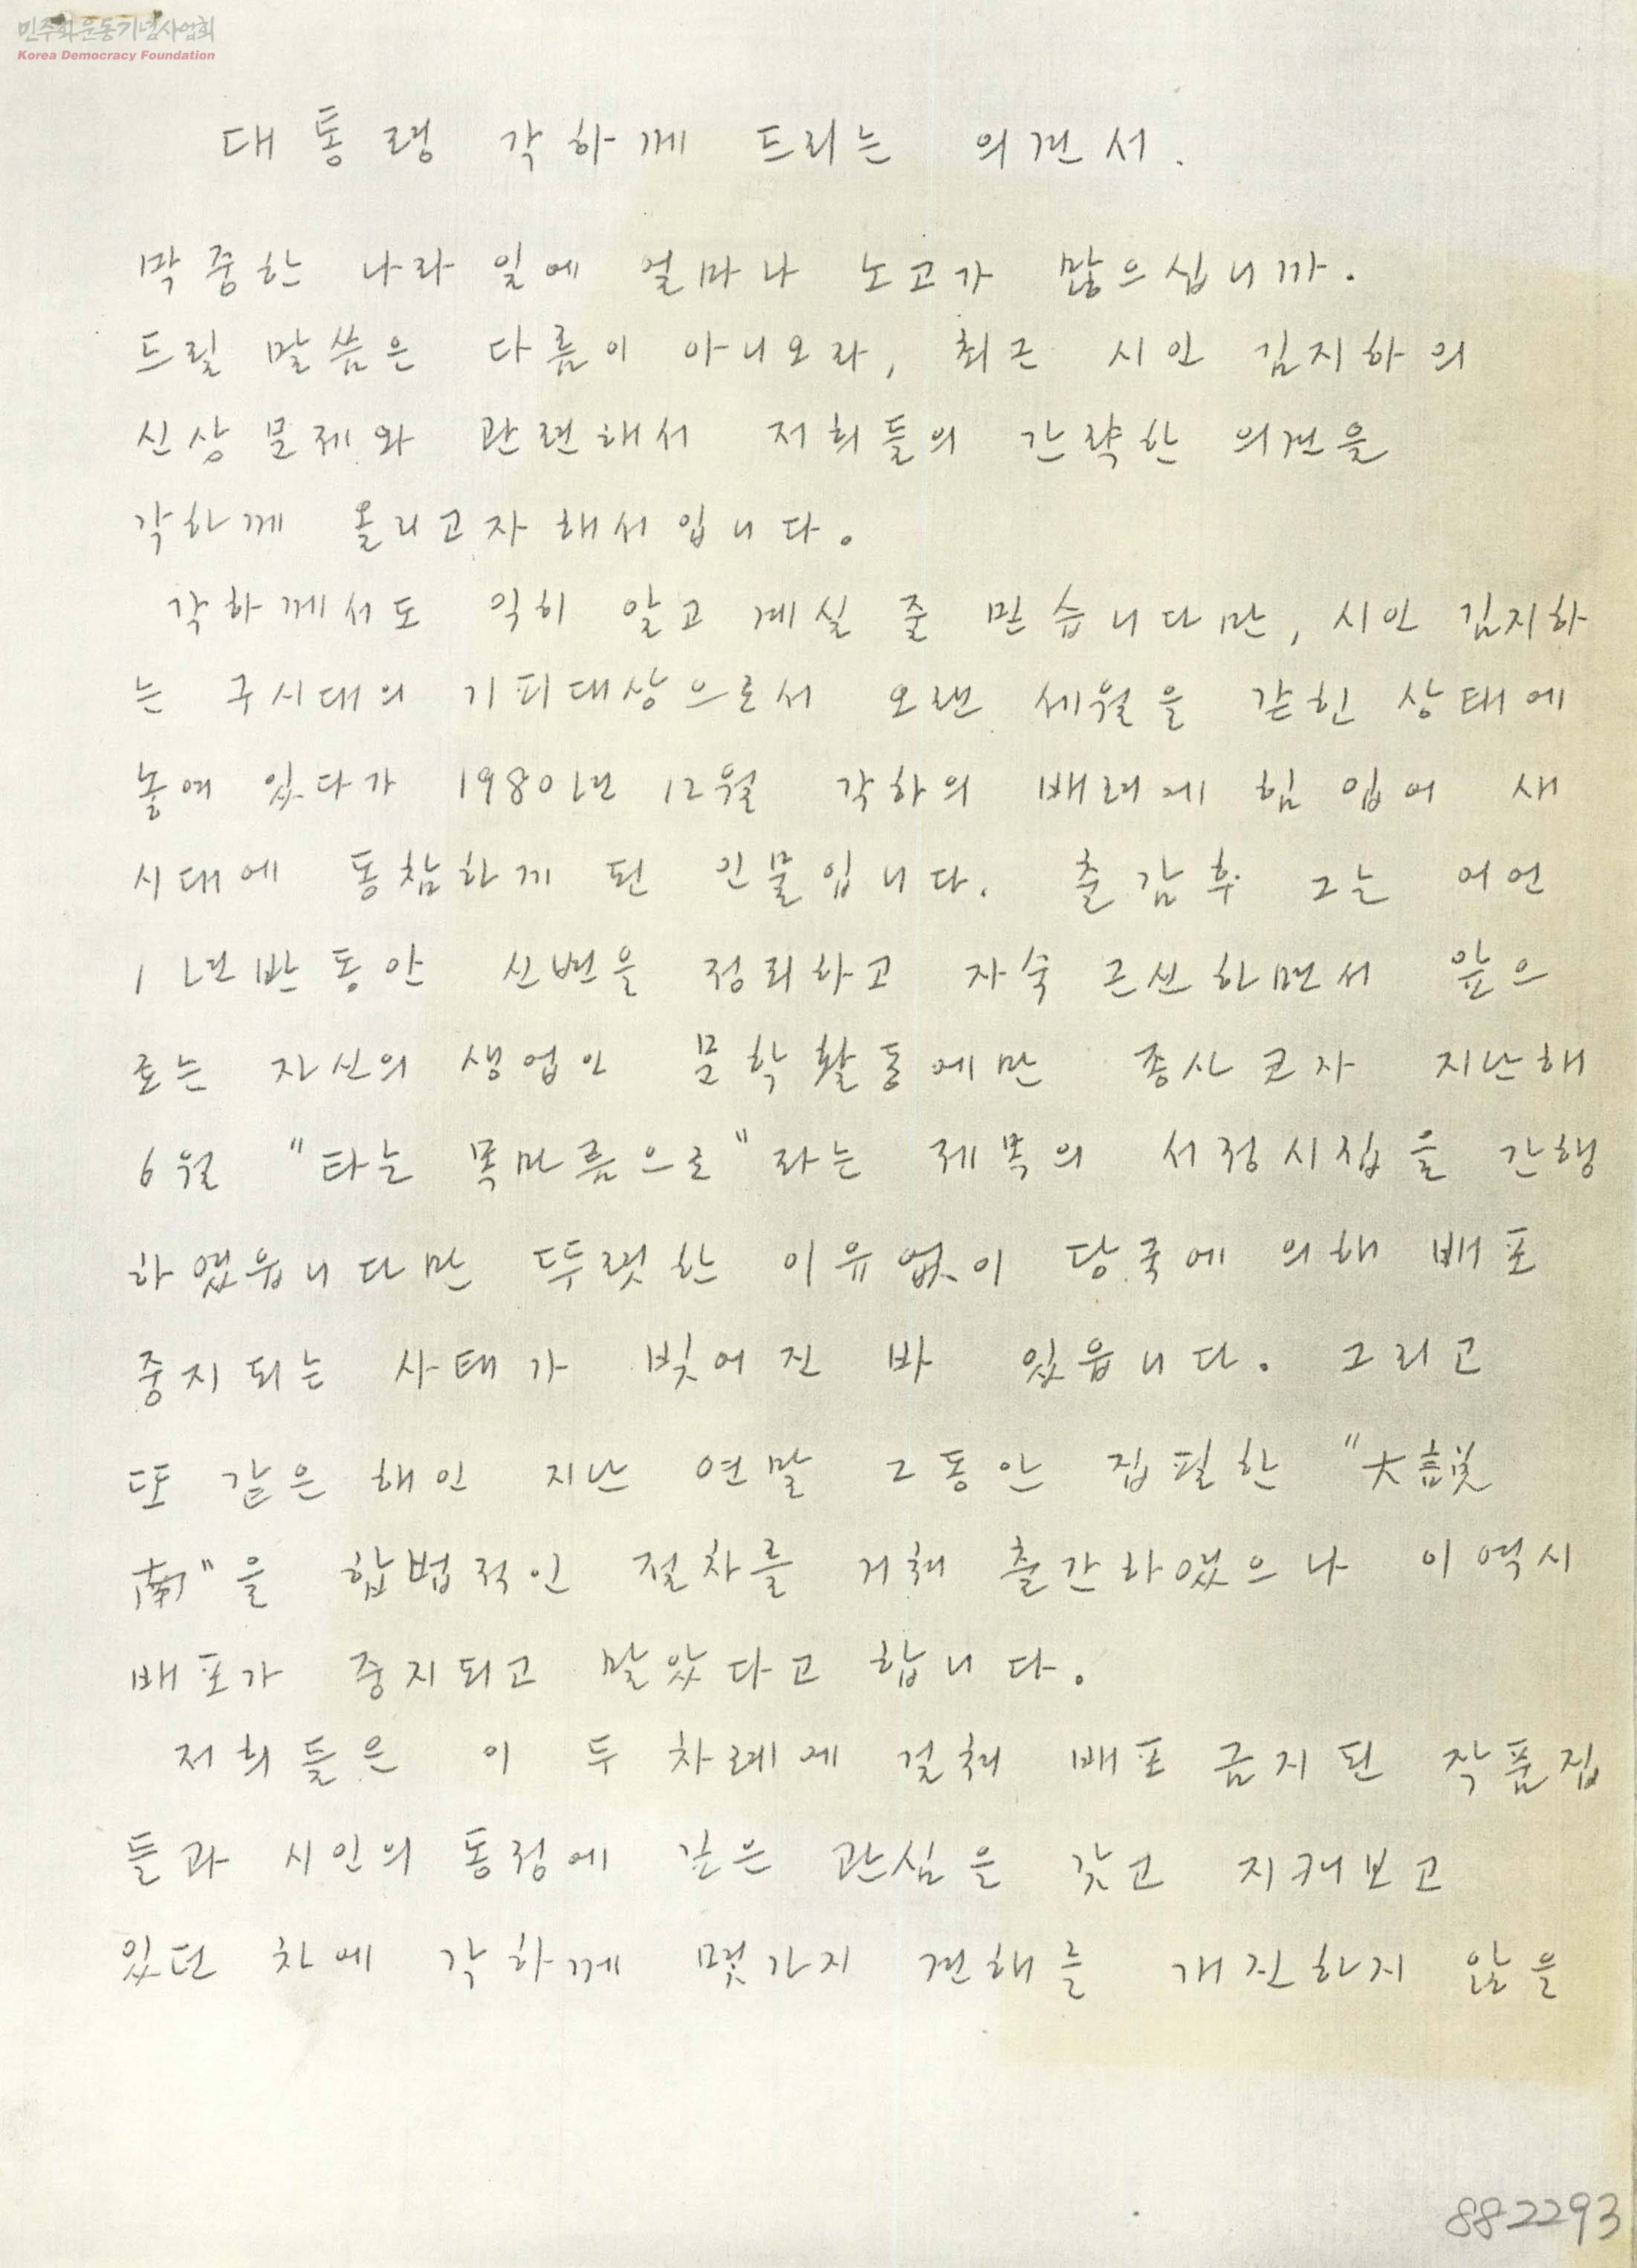 민주화운동기념사업회
Korea Democracy Foundation
대통령 각하께 드리는 의견서.
막중한 나라 일에 얼마나 노고가 많으십니까.
드릴 말씀은 다름이 아니오라, 최근 시인 김지하의
신상문제와 관련해서 저희들의 간략한 의견을
각하께 올리고자 해서입니다.
각하께서도 익히 알고 계실 줄 믿습니다만, 시인 김지하
는 구시대의 기피대상으로서 오랜 세월을 갇힌 상태에
놓여 있다가 1980년 12월 각하의 배려에 힘 입어 새
시대에 동참하게 된 인물입니다. 출감후 그는 어언
1년반동안 신변을 정리하고 자숙 근신하면서 앞으
로는 자신의 생업인 문학활동에만 종사코자 지난해
6월 "타는 목마름으로"라는 제목의 서정시집을 간행
하였읍니다만 뚜렷한 이유없이 당국에 의해 배포
중지되는 사태가 빚어진 바 있읍니다. 그리고
또 같은 해인 지난 연말 그동안 집필한 "大說
南"을 합법적인 절차를 거쳐 출간하였으나 이역시
배포가 중지되고 말았다고 합니다.
저희들은 이 두 차례에 걸쳐 배포 금지된 작품집
들과 시인의 동정에 깊은 관심을 갖고 지켜보고
있던 차에 각하께 몇가지 견해를 개진하지 않을
882293